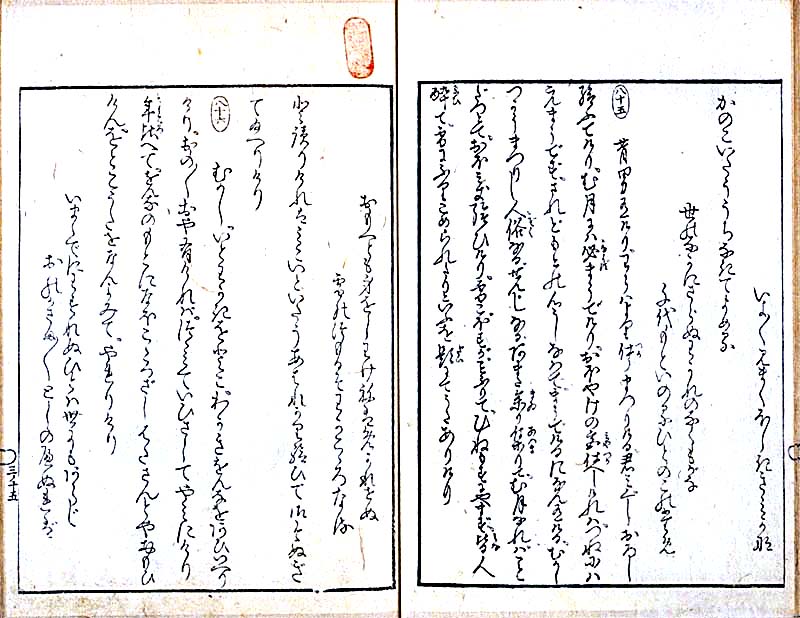 いよ〳〵見まくほしききみかな
かのこいたううちなきてよめる
世の中にさらぬわかれのなくもがな
千代もといのるひとのこのため
八十五 昔男有けりわらはより仕うまつりける君みぐしおろし
給ふてけりむ月には必まうでけりおほやけの宮仕しければつねには
えまうでずされどもとの心うしなはでまうでけるになん有けるむかし
つかうまつりし人俗なるぜんじなるあまた参り集りてむ月なればこと
だつとておほみき給ひけり雪こぼすがごとふりてひねもすにやまず皆人
酔て雪にふりこめられたりといふを題にてうたありけり
おもへども身をしわけねばめかれせぬ
雪のつもるぞわがこゝろなる
と読りければみこいといたうあはれがり給ひて御ぞぬぎ
てたまへりけり
八十六 むかしいとわかきをとこわかきをんなをあひいへり
けりおの〳〵おや有ければつゝみていひさしてやみにけり
年頃へてをんなのもとになほこゝろざしはたさんとやおもひ
けんをとこうたをなんよみてやれりけり
いままでにわすれぬひとは世にもあらじ
おのがさま〳〵としのへぬれば
三十五